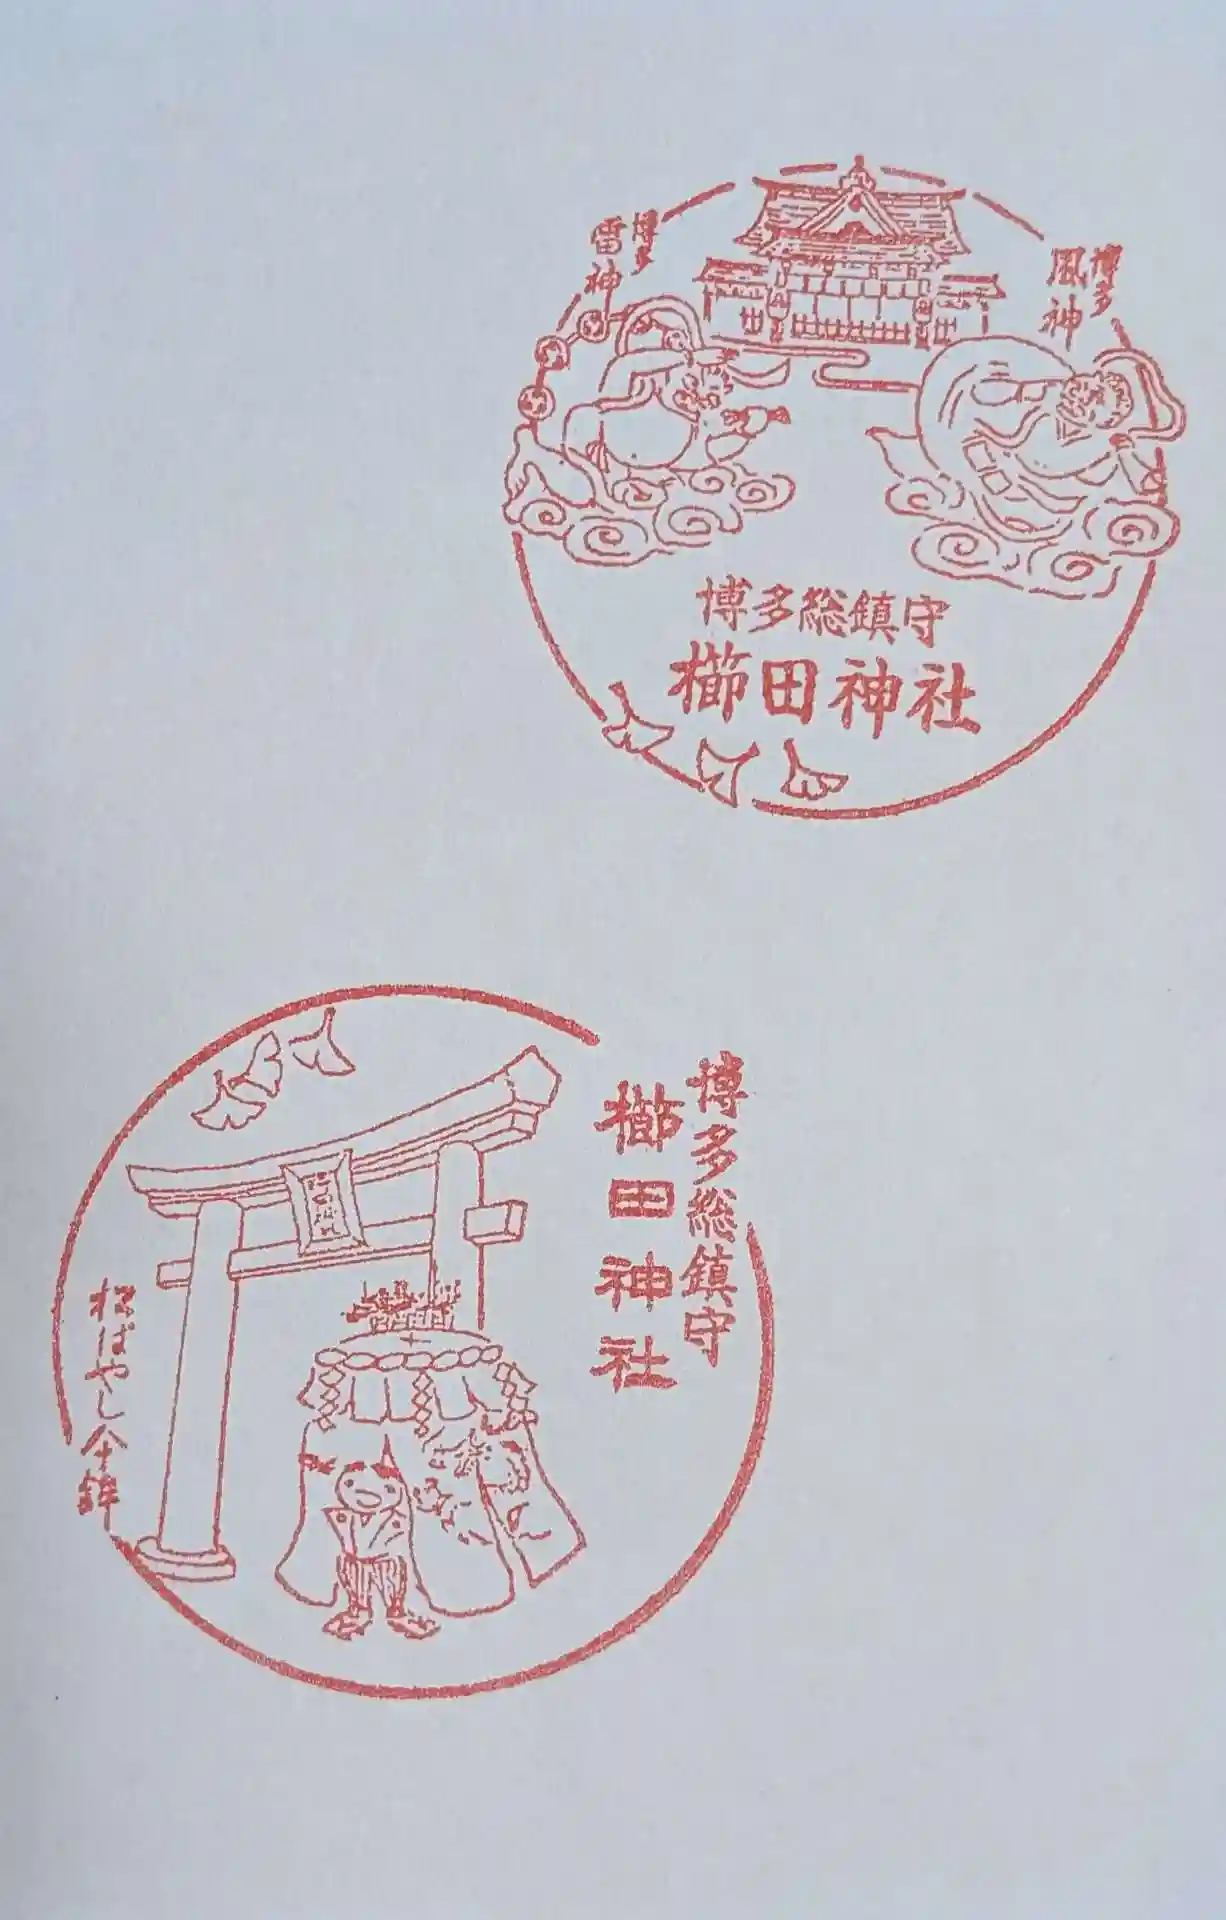 博多
雷神
博多
風神
博多総鎮守
櫛田神社
博多総鎮守
櫛田神社
松ばやし傘鉾